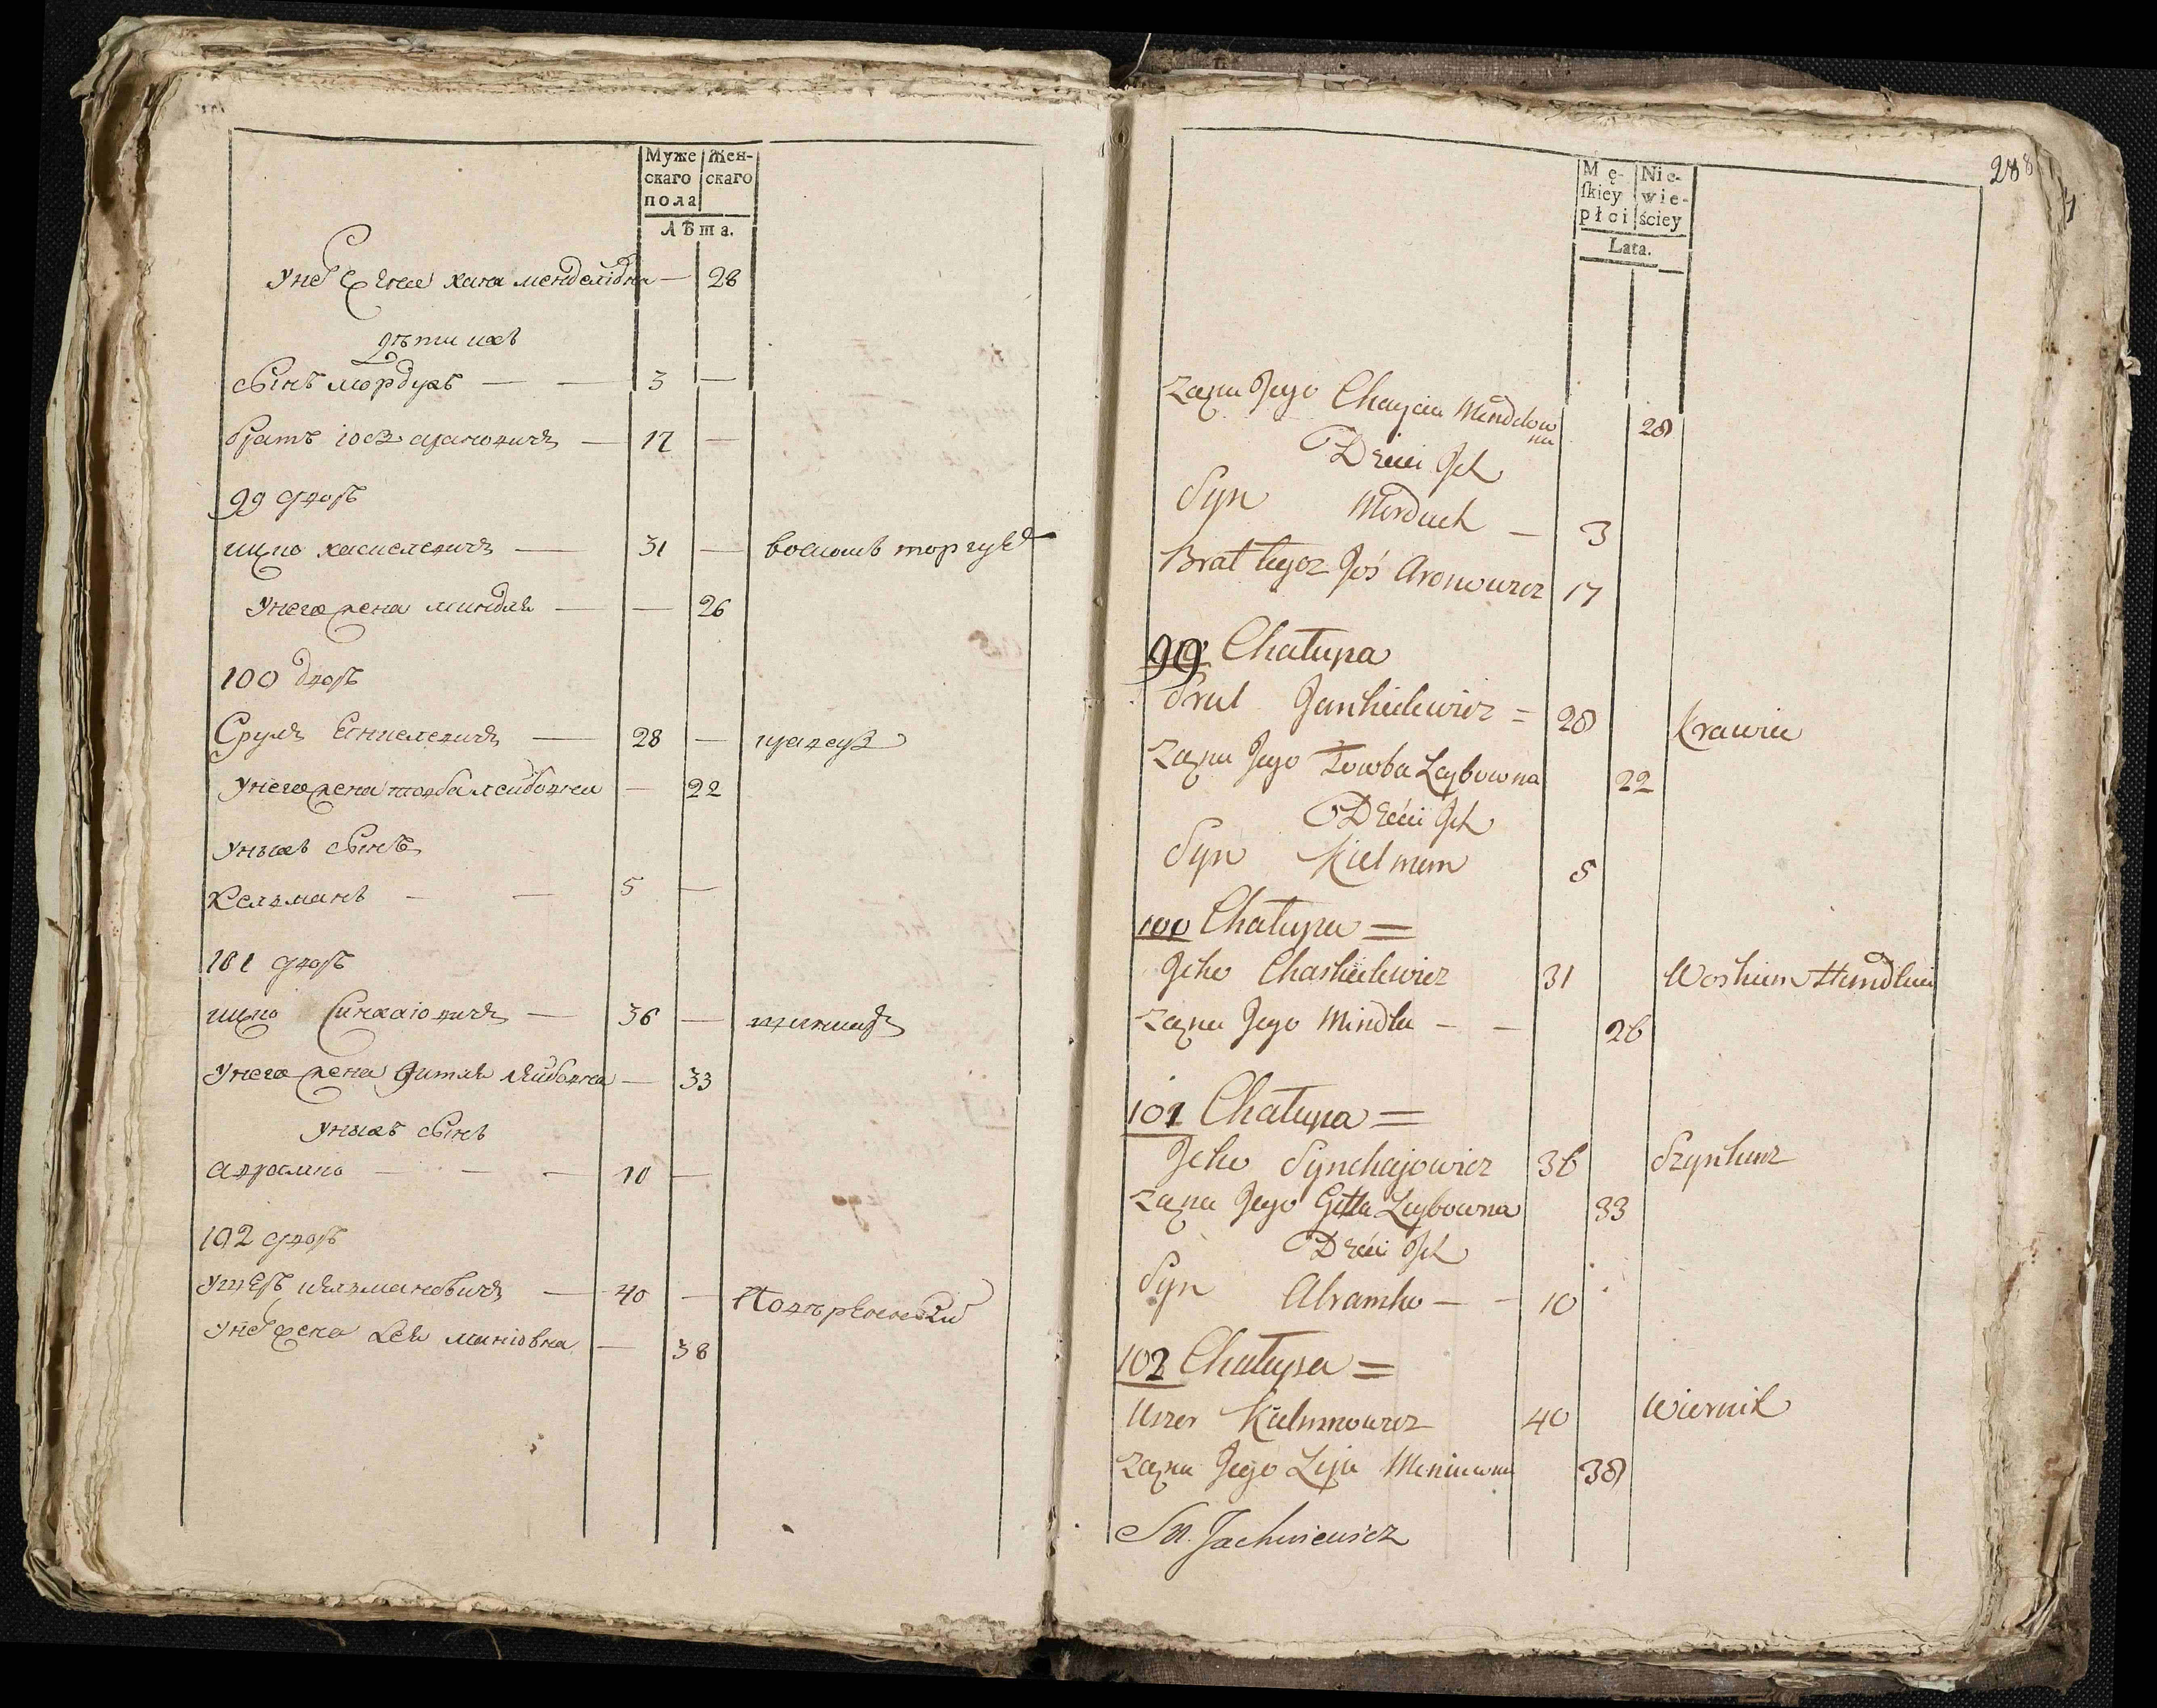 Муже Жен-
скаго скаго
пола
Лѣта.
Унег Жена хана менделiовна — 28
дѣти ихъ
сынъ мордухъ — — 3 —
братъ iосъ ароновичъ — 17 —
99 дворъ
ицко хаскелевичъ — 31 — воскомъ торгуетъ
Унего жена миндля — — 26
100 дворъ
Сруль Енкелевичъ — 28 — кравецъ
Унего жена товба лейбовна — 22
Унихъ сынъ
Келманъ — — 5 —
101 дворъ
ицко Синхаiовичъ — 36 — шинкаръ
Унего жена Гитля лейбовна — 33
Унихъ сынъ
Аврамко — — — 10 —
102 дворъ
Ушеръ келмановичъ — 40 — Повѣренный
Унег жена Лея манiовна — 38
288
Mę- Nie-
ſkiey wie-
płci ściey
Lata.
Zona Jego Chaycia Mendelow
na 28
Dzieci Ich
Syn Morduch — 3
Brat tegoz Joś Aronowicz 17
99 Chałupa
Srul Jankielewicz = 28 Krawiec
Zona Jego Towba Leybowna 22
Dzieci Ich
Syn Kielmem 5
100 Chałupa =
Icko Chaskielewicz 31 Woskiem Handluie
Zona Jego Mindla — — 26
101 Chałupa =
Icko Synchajowicz 36 Szynkarz
Zona Jego Gitla Leybowna 33
Dzieci Ich
Syn Abramko — — 10
102 Chałupa =
Uszer Kielmnowicz 40 Wiernik
Zona Jego Leja Meniowna 38
Jachniewicz